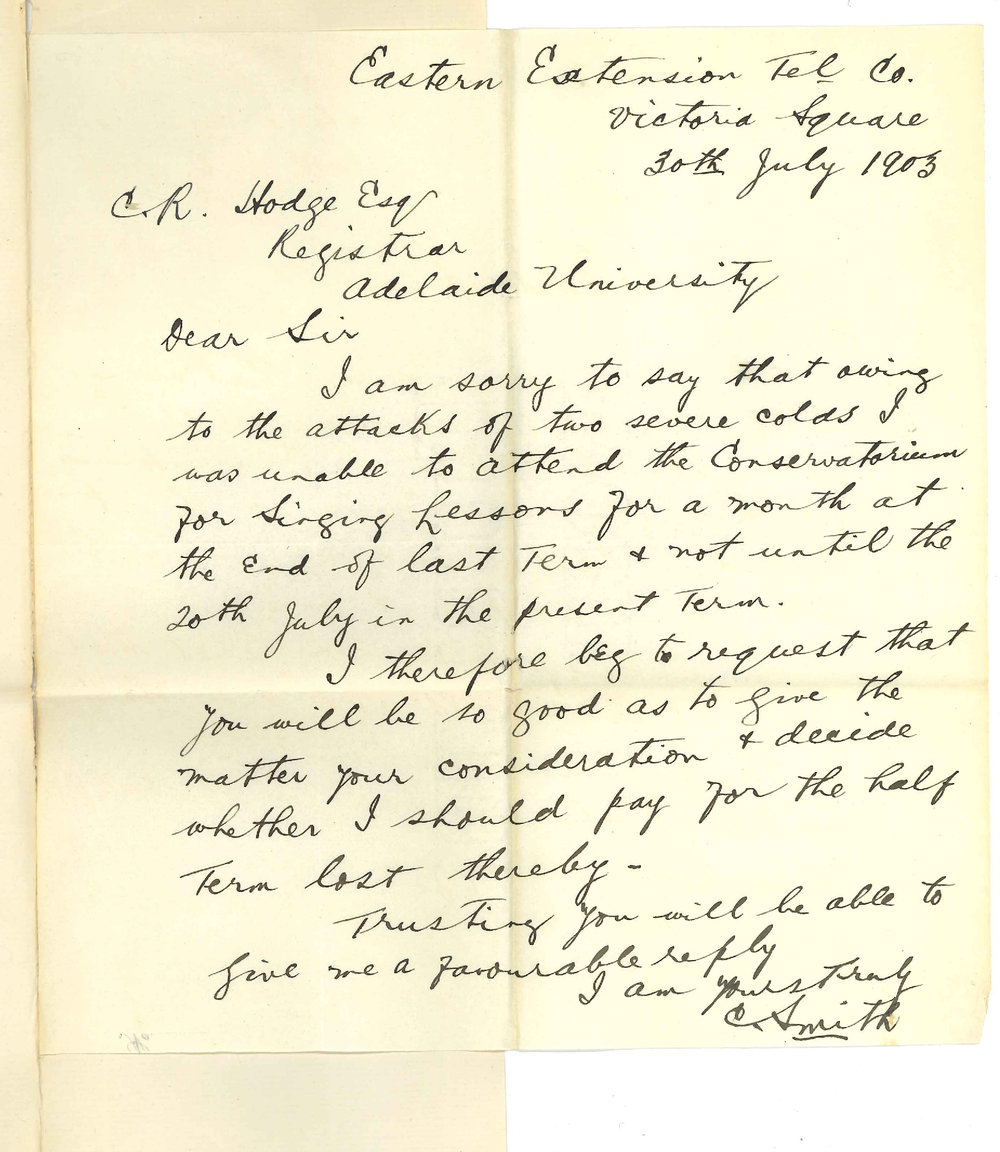 Eastern Extension Tel Co.
Victoria Square
30th July 1903
C.R. Hodge Esq
Registrar
Adelaide University
Dear Sir
I am sorry to say that owing
to the attacks of two severe colds I
was unable to attend the Conservatorium
for Singing Lessons for a month at
the End of last Term & not until the
20th July in the present Term.
I therefore beg to request that
you will be so good as to give the
matter your consideration & decide
whether I should pay for the half
Term lost thereby -
Trusting you will be able to
give me a favourable reply
I am yours truly
C. Smith